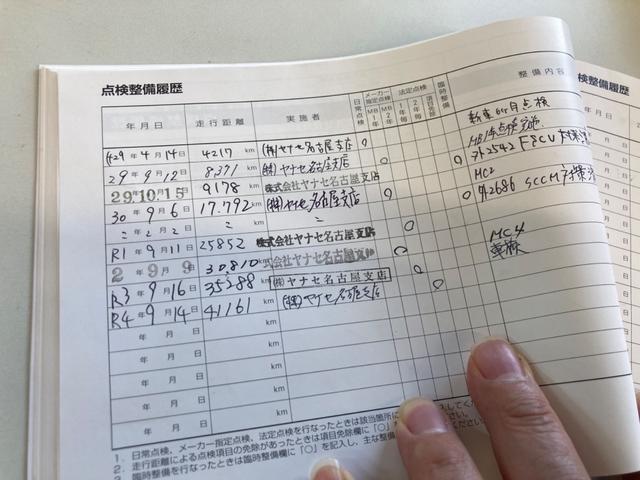 点検整備履歴
年月日 走行距離 実施者 日常点検 メーカー指定点検 MB1年 MB2年 法定点検 1年毎 2年毎 項目免除 臨時整備 整備内容
H29年4月14日 4217km (株)ヤナセ名古屋支店 ○ 新車6ヶ月点検
29年9月12日 8,371km (株)ヤナセ名古屋支店 ○
29.10.15 9178km 株式会社ヤナセ名古屋支店 ○
30年9月6日 17.792km (株)ヤナセ名古屋支店 ○ MC2
〃年〃月〃日 〃km 〃 ○
R1年9月11日 25852km 株式会社ヤナセ名古屋支店 ○
2年9月9日 30,810km 株式会社ヤナセ名古屋支店 ○ MC4 車検
R3年9月16日 35288km (株)ヤナセ名古屋支店 ○
R4年9月14日 41161km (株)ヤナセ名古屋支店 ○
年月日 km
年月日 km
年月日 km
年月日 km
1. 日常点検、メーカー指定点検、法定点検を行なったときは該当箇所に
2. 走行距離による点検項目の免除があったときは項目免除欄に「○」
3. 臨時整備を行なったときは臨時整備欄に「○」を記入し、主な整備
点検整備
年月日